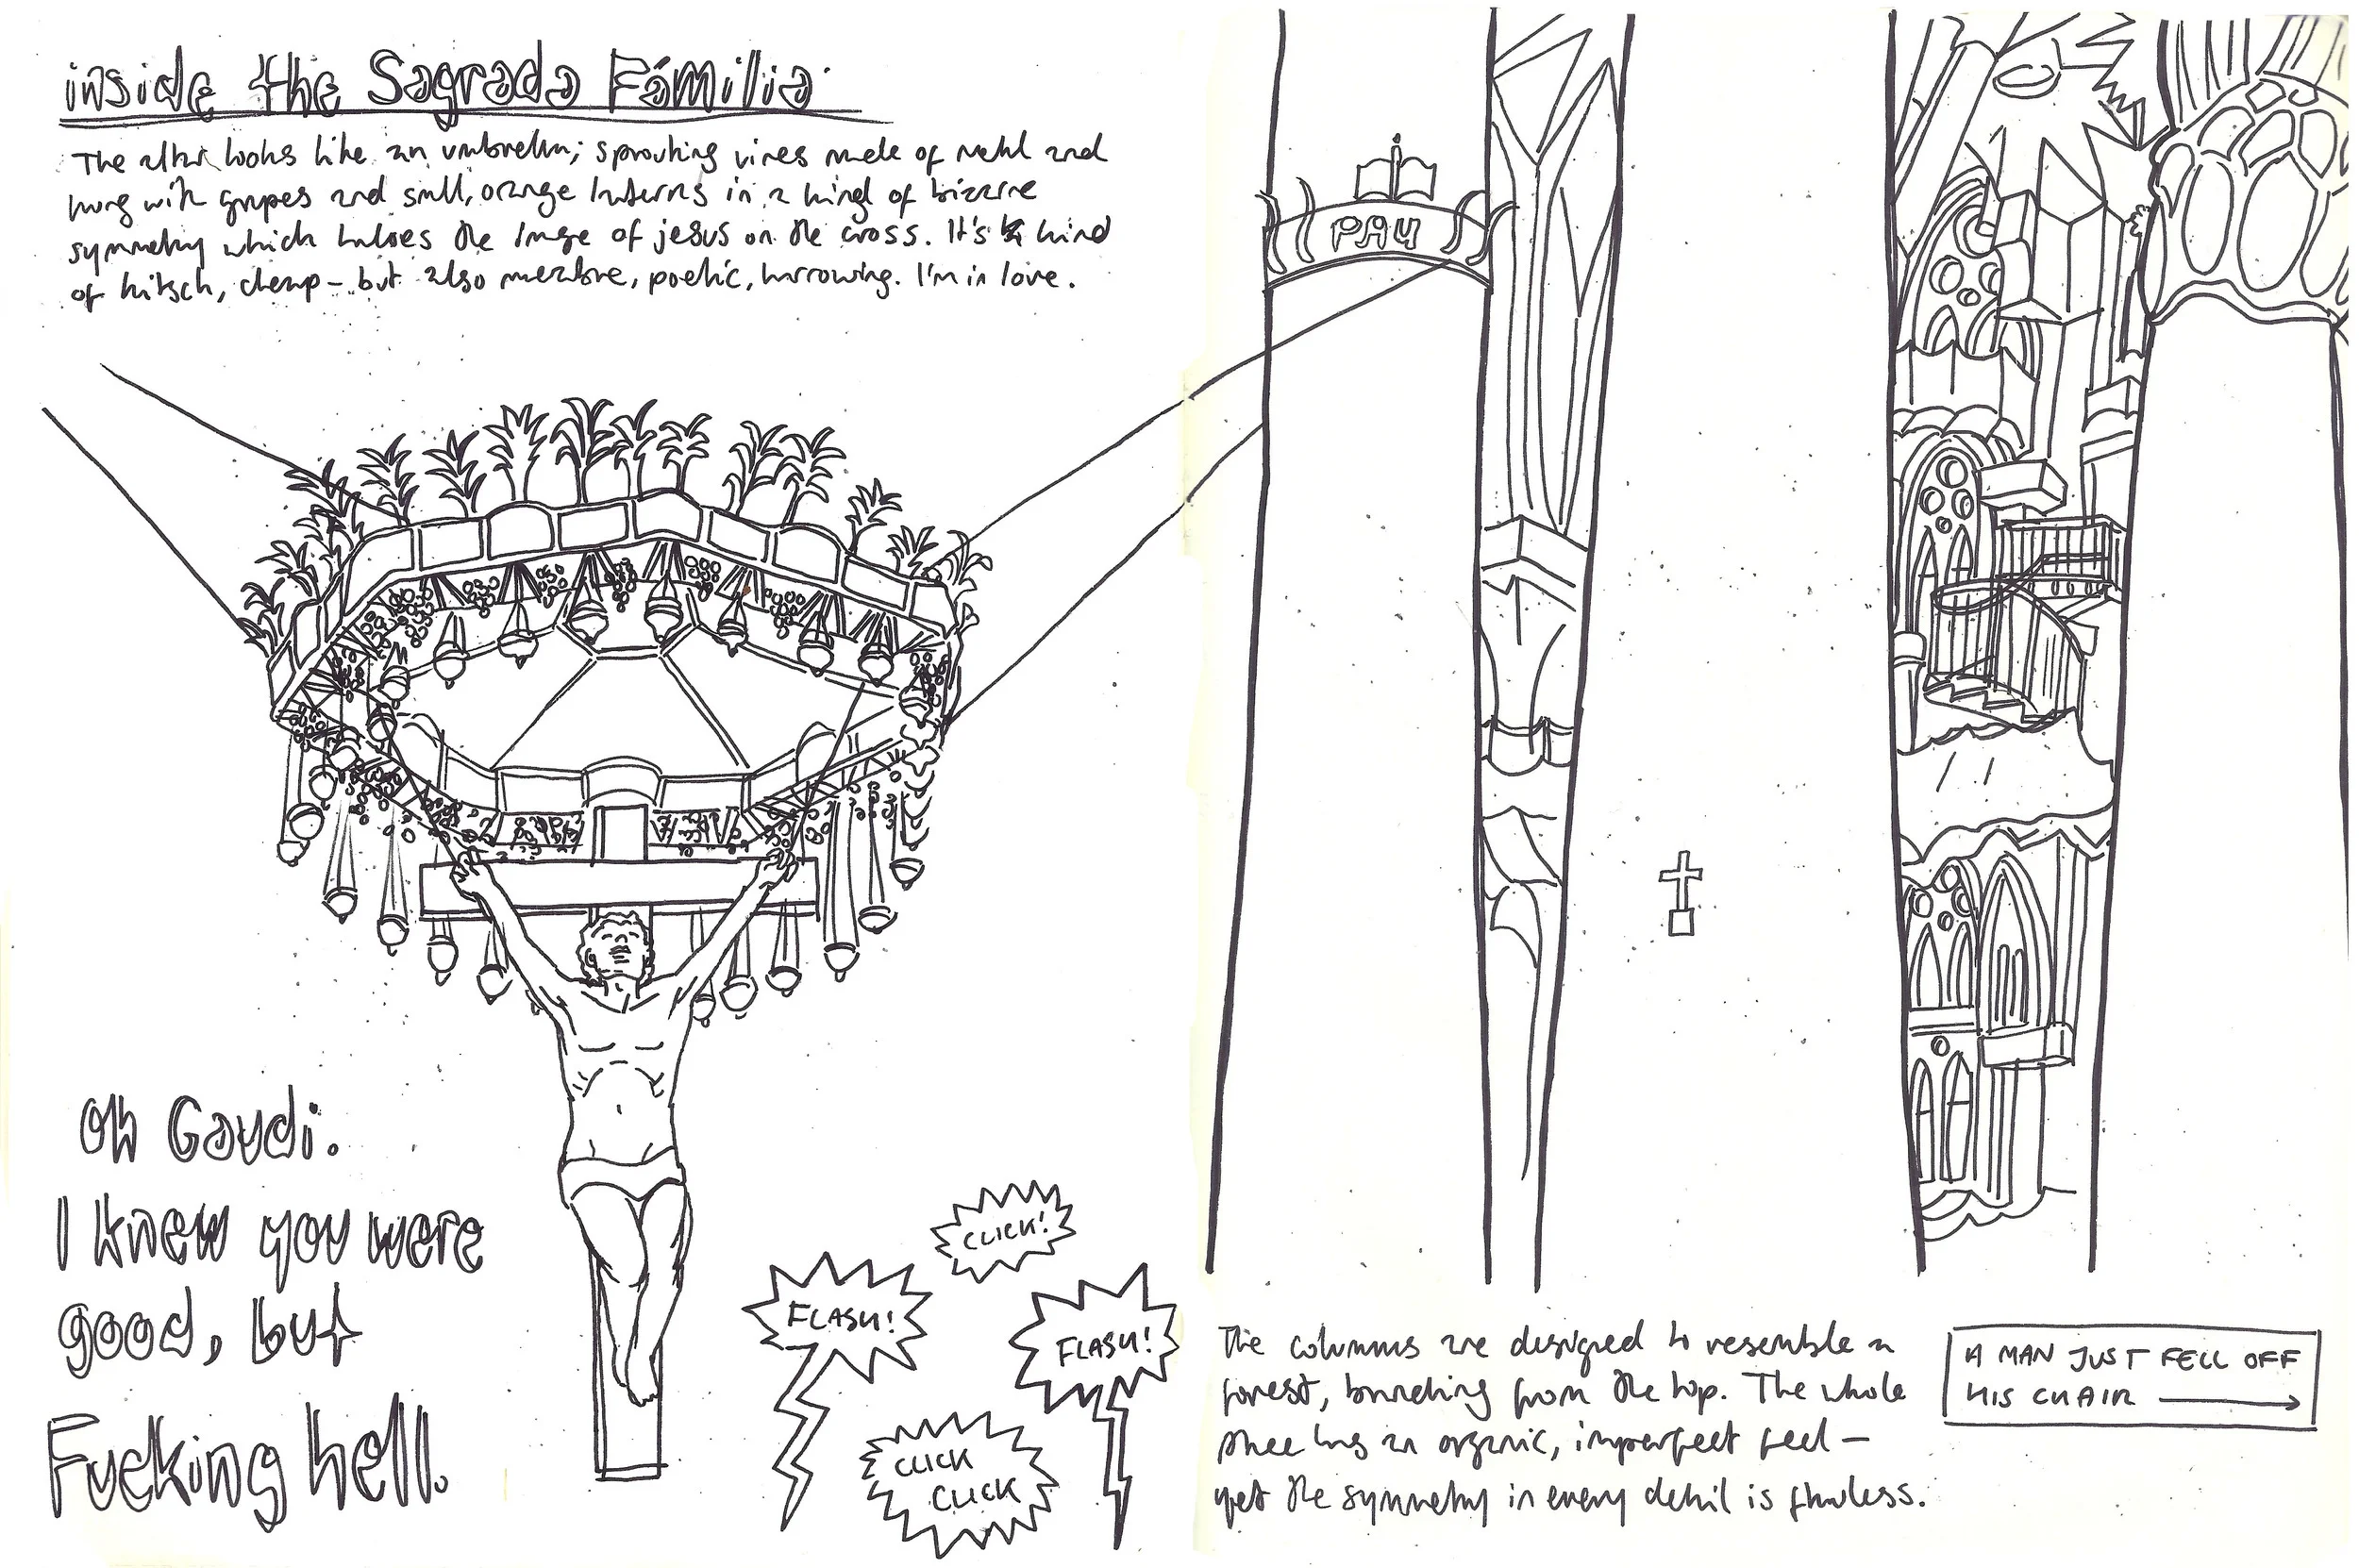 inside the Sagrada Família.
The altar looks like an umbrella; sprouting vines made of metal and
hung with grapes and small, orange lanterns in a kind of bizarre
symmetry which haloes the image of jesus on the cross. It's kind
of kitsch, cheap - but also macabre, poetic, harrowing. I'm in love.
PAU
Oh Gaudi.
I knew you were
good, but
Fucking hell.
CLICK!
FLASH!
FLASH!
CLICK
CLICK
The columns are designed to resemble a
forest, branching from the top. The whole
place has an organic, imperfect feel -
yet the symmetry in every detail is flawless.
A MAN JUST FELL OFF
HIS CHAIR